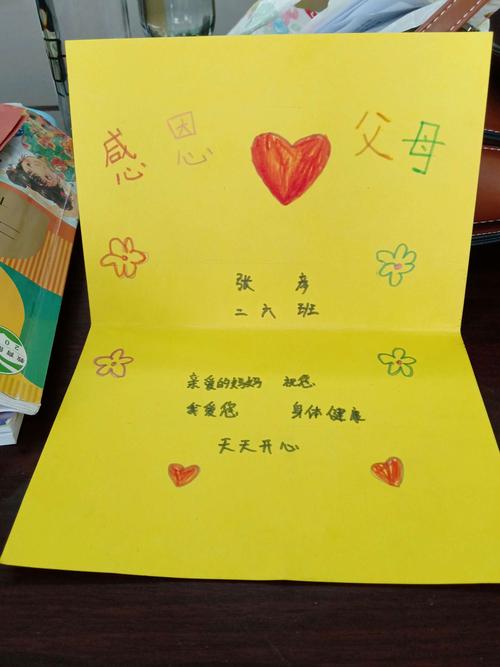 感恩 父母
张
二六班
亲爱的妈妈 祝您
我爱您 身体健康
天天开心